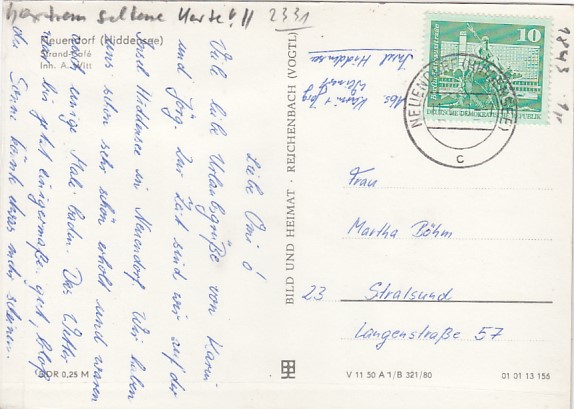 extrem seltene Karte!!! 2331
Neuendorf (Hiddensee)
Strand-Café
Inh. A. Witt
Liebe Omi!
Viele liebe Urlaubsgrüße von Karin
und Jörg. Zur Zeit sind wir auf der
Insel Hiddensee in Neuendorf. Wir haben
uns schon sehr schön erholt und waren
auch einige Male baden. Das Wetter
ist bis jetzt einigermaßen gut, bloß
die Sonne könnte etwas mehr scheinen.
DDR 0,25 M
BILD UND HEIMAT · REICHENBACH (VOGTL)
Abs. Karin + Jörg
Insel Hiddensee
10
DEUTSCHE DEMOKRATISCHE REPUBLIK
NEUENDORF (HIDDENSEE)
c
1843
Frau
Martha Böhm
23 Stralsund
Langenstraße 57
V 11 50 A 1/B 321/80
01 01 13 156